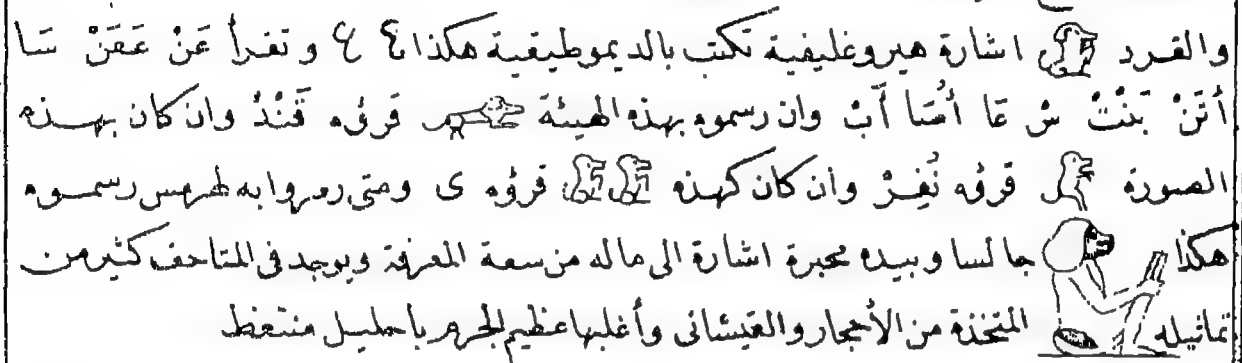 والقرد اشارة هيروغليفية تكتب بالديموطيقية هكذا وتقرأ عَنْ عَقَنْ سَا
أَتَنْ بَنْتْ ش عَا أُمتَا آَبْ وان رسموه بهذه الهيئة قرؤه قَنْدْ وان كان بهذه
الصورة قرؤه نُفِرْ وان كان كهذه قرؤه ى ومتى رمزوا به لهرمس رسموه
هكذا جالسا وبيده محبرة اشارة الى ماله من سعة المعرفة ويوجد فى المتاحف كثير من
تماثيله المتخذة من الأحجار والقيشانى وأغلبها عظيم الجرم باحليل منتعظ